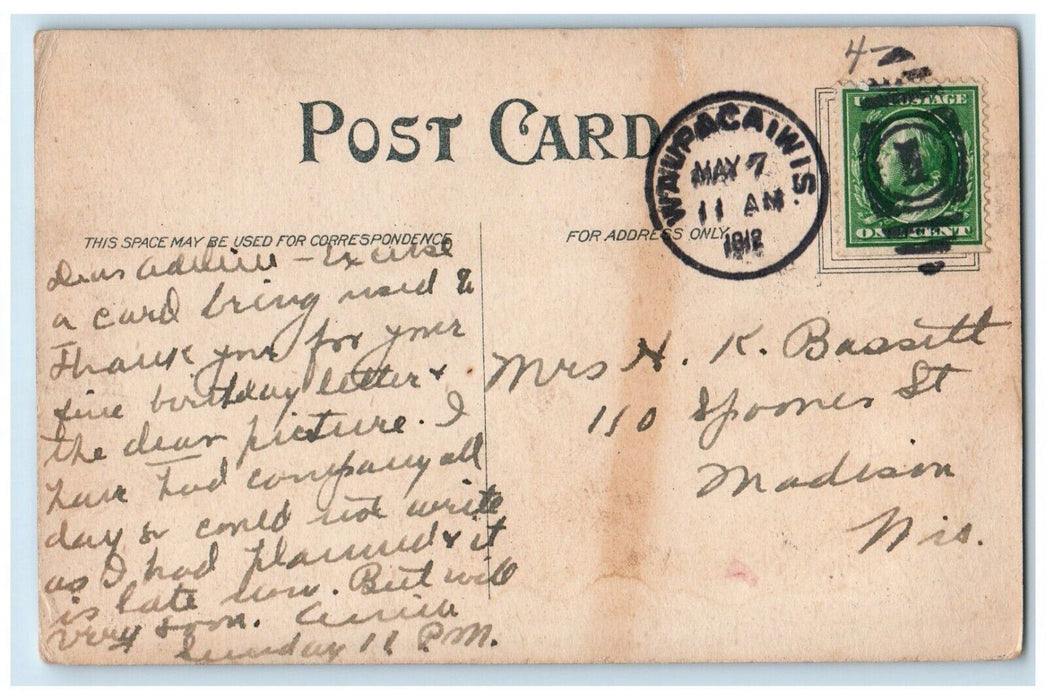 4-
POST CARD
U.S. POSTAGE
ONE CENT
WAUPACA, WIS.
MAY 7
11 AM
1912
1
THIS SPACE MAY BE USED FOR CORRESPONDENCE
FOR ADDRESS ONLY
Dear Adeline - Excuse
a card being used &
Thank you for your
fine birthday letter &
the dear picture. I
have had company all
day so could not write
as I had planned & it
is late now. But will
very soon.
Sunday 11 P.M.
Mrs H. K. Bassett
110 Spooner St
Madison
Wis.